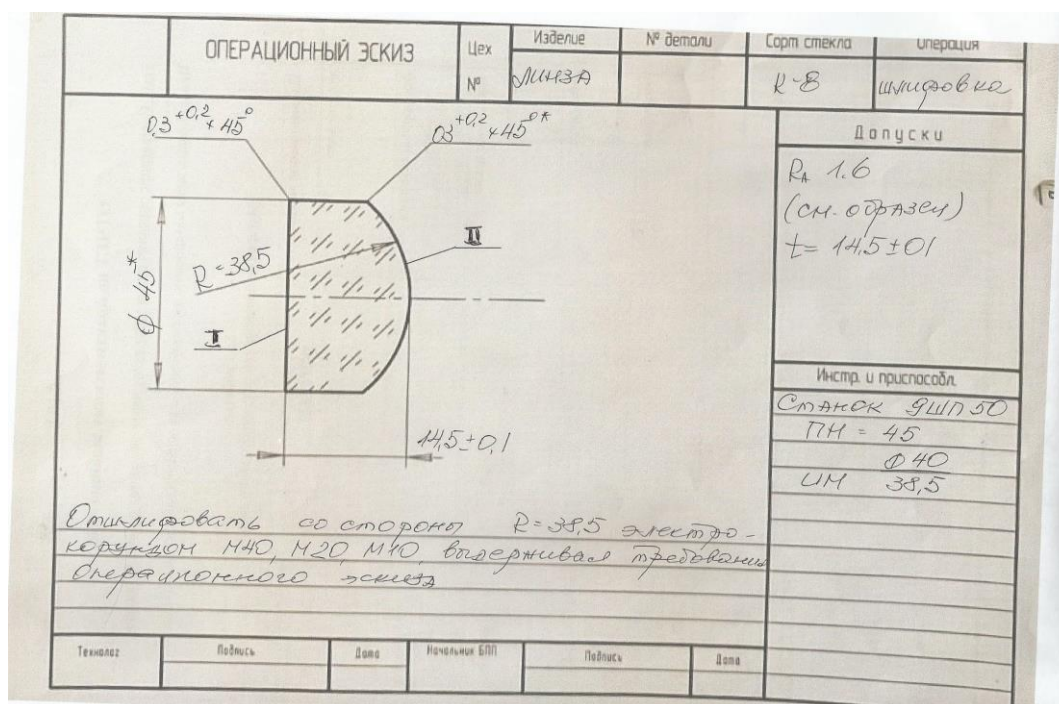 ОПЕРАЦИОННЫЙ ЭСКИЗ
Цех
№
Изделие
№ детали
Сорт стекла
Операция
ЛИНЗА
К-8
шлифовка
0,3 +0,2 × 45°
0,3 +0,2 × 45° *
Допуски
RA 1.6
(см. образец)
t = 14,5±0,1
R=38,5
II
I
Ф 45*
14,5±0,1
Инстр. и приспособл.
СТАНОК ЯШП 50
ПН = 45
Ф 40
ИМ 38,5
Отшлифовать со стороны R=38,5 электро-
корундом М40, М20, М10 выдерживая требования
операционного эскиза
Технолог
Подпись
Дата
Начальник БПП
Подпись
Дата